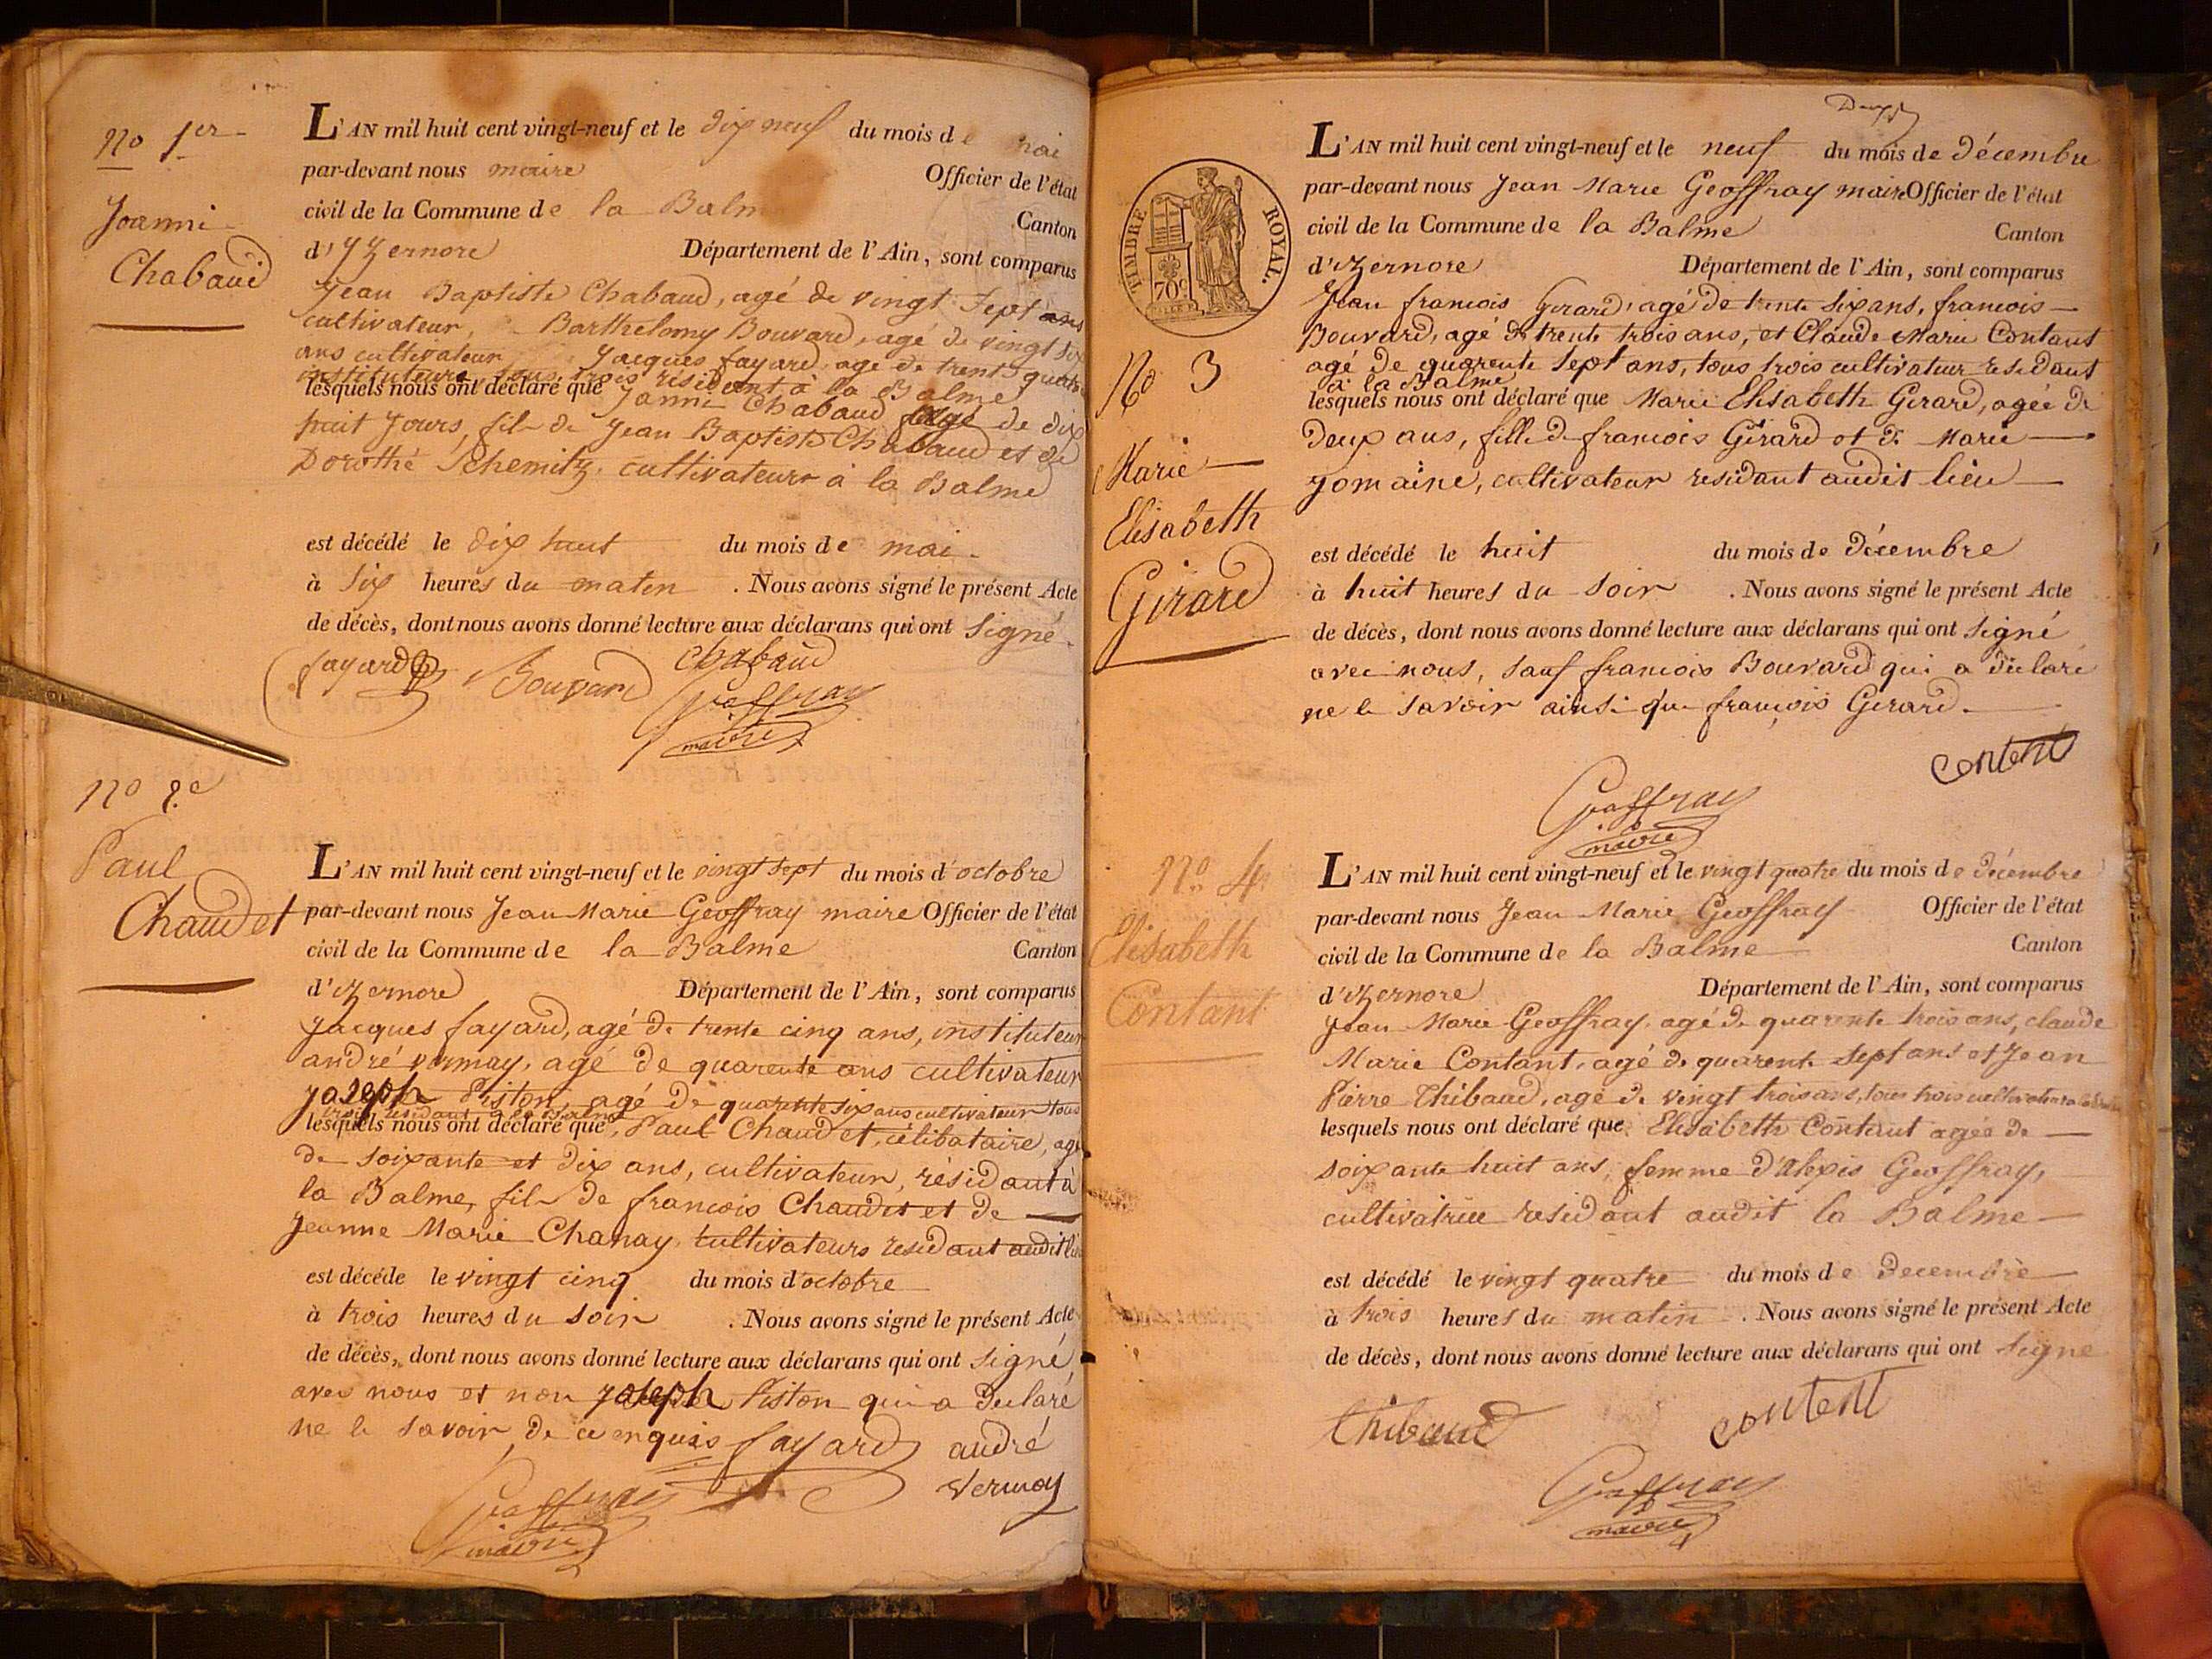 No 1er
Joanni
Chabaud
L'AN mil huit cent vingt-neuf et le dix neuf du mois de mai
par-devant nous maire Officier de l'état
civil de la Commune de la Balm
Canton
d'Yzernore Département de l'Ain, sont comparus
Jean Baptiste Chabaud, agé de vingt Sept ans
cultivateur, Barthelemy Bouvard, agé de vingt six
ans cultivateur Jacques fayard, age de trente quatre
instituteur, tous trois résidant à la Balme
lesquels nous ont déclaré que Janni Chabaud agé de dix
huit Jours, fils de Jean Baptiste Chabaud et de
Dorothé Schemitz, cultivateurs à la Balme
est décédé le dix huit du mois de mai
à Six heures du matin . Nous avons signé le présent Acte
de décès, dont nous avons donné lecture aux déclarans qui ont Signé
fayard Bouvard Chabaud
Geoffray
maire
No 2e
Paul
Chaudet
L'AN mil huit cent vingt-neuf et le vingt sept du mois d'octobre
par-devant nous Jean Marie Geoffray maire Officier de l'état
civil de la Commune de la Balme Canton
d'izernore Département de l'Ain, sont comparus
Jacques fayard, agé de trente cinq ans, instituteur
andré vermay, agé de quarente ans cultivateur
joseph Piston, agé de quarente six ans cultivateur tous
trois residant a la Balme
lesquels nous ont déclaré que, Paul Chaudet, célibataire, agé
de soixante et dix ans, cultivateur, résidant à
la Balme, fils de francois Chaudet et de
Jeanne Marie Chanay, cultivateurs residant audit lieu
est décédé le vingt cinq du mois d'octobre
à trois heures du soir . Nous avons signé le présent Acte
de décès, dont nous avons donné lecture aux déclarans qui ont signé
avec nous et non joseph Piston qui a declaré
ne le savoir de ce enquis fayard andré
vermay
Geoffray
maire
Deux
TIMBRE ROYAL.
70c
L'AN mil huit cent vingt-neuf et le neuf du mois de décembre
par-devant nous Jean Marie Geoffray maire Officier de l'état
civil de la Commune de la Balme Canton
d'izernore Département de l'Ain, sont comparus
No 3
Marie
Elisabeth
Girard
Jean francois Girard, agé de trente six ans, francois
Bouvard, agé de trente trois ans, et Claude Marie Contant
agé de quarente sept ans, tous trois cultivateur residant
à la Balme
lesquels nous ont déclaré que Marie Elisabeth Girard, agée de
deux ans, fille de francois Girard et de Marie
Jomaine, cultivateur residant audit lieu
est décédé le huit du mois de décembre
à huit heures du soir . Nous avons signé le présent Acte
de décès, dont nous avons donné lecture aux déclarans qui ont signé
avec nous, sauf francois Bouvard qui a déclaré
ne le savoir ainsi que françois Gerard.
contant
Geoffray
maire
No 4
Elisabeth
Contant
L'AN mil huit cent vingt-neuf et le vingt quatre du mois de décembre
par-devant nous Jean Marie Geoffray Officier de l'état
civil de la Commune de la Balme Canton
d'izernore Département de l'Ain, sont comparus
Jean Marie Geoffray, agé de quarente trois ans, claude
Marie Contant, agé de quarente sept ans et Jean
Pierre Thibaud, agé de vingt trois ans, tous trois cultivateur
lesquels nous ont déclaré que Elisabeth Contant agée de
soixante huit ans, femme d'alexis Geoffray,
cultivatrice residant audit la Balme
est décédé le vingt quatre du mois de decembre
à trois heures du matin . Nous avons signé le présent Acte
de décès, dont nous avons donné lecture aux déclarans qui ont signé
Thibaud contant
Geoffray
maire